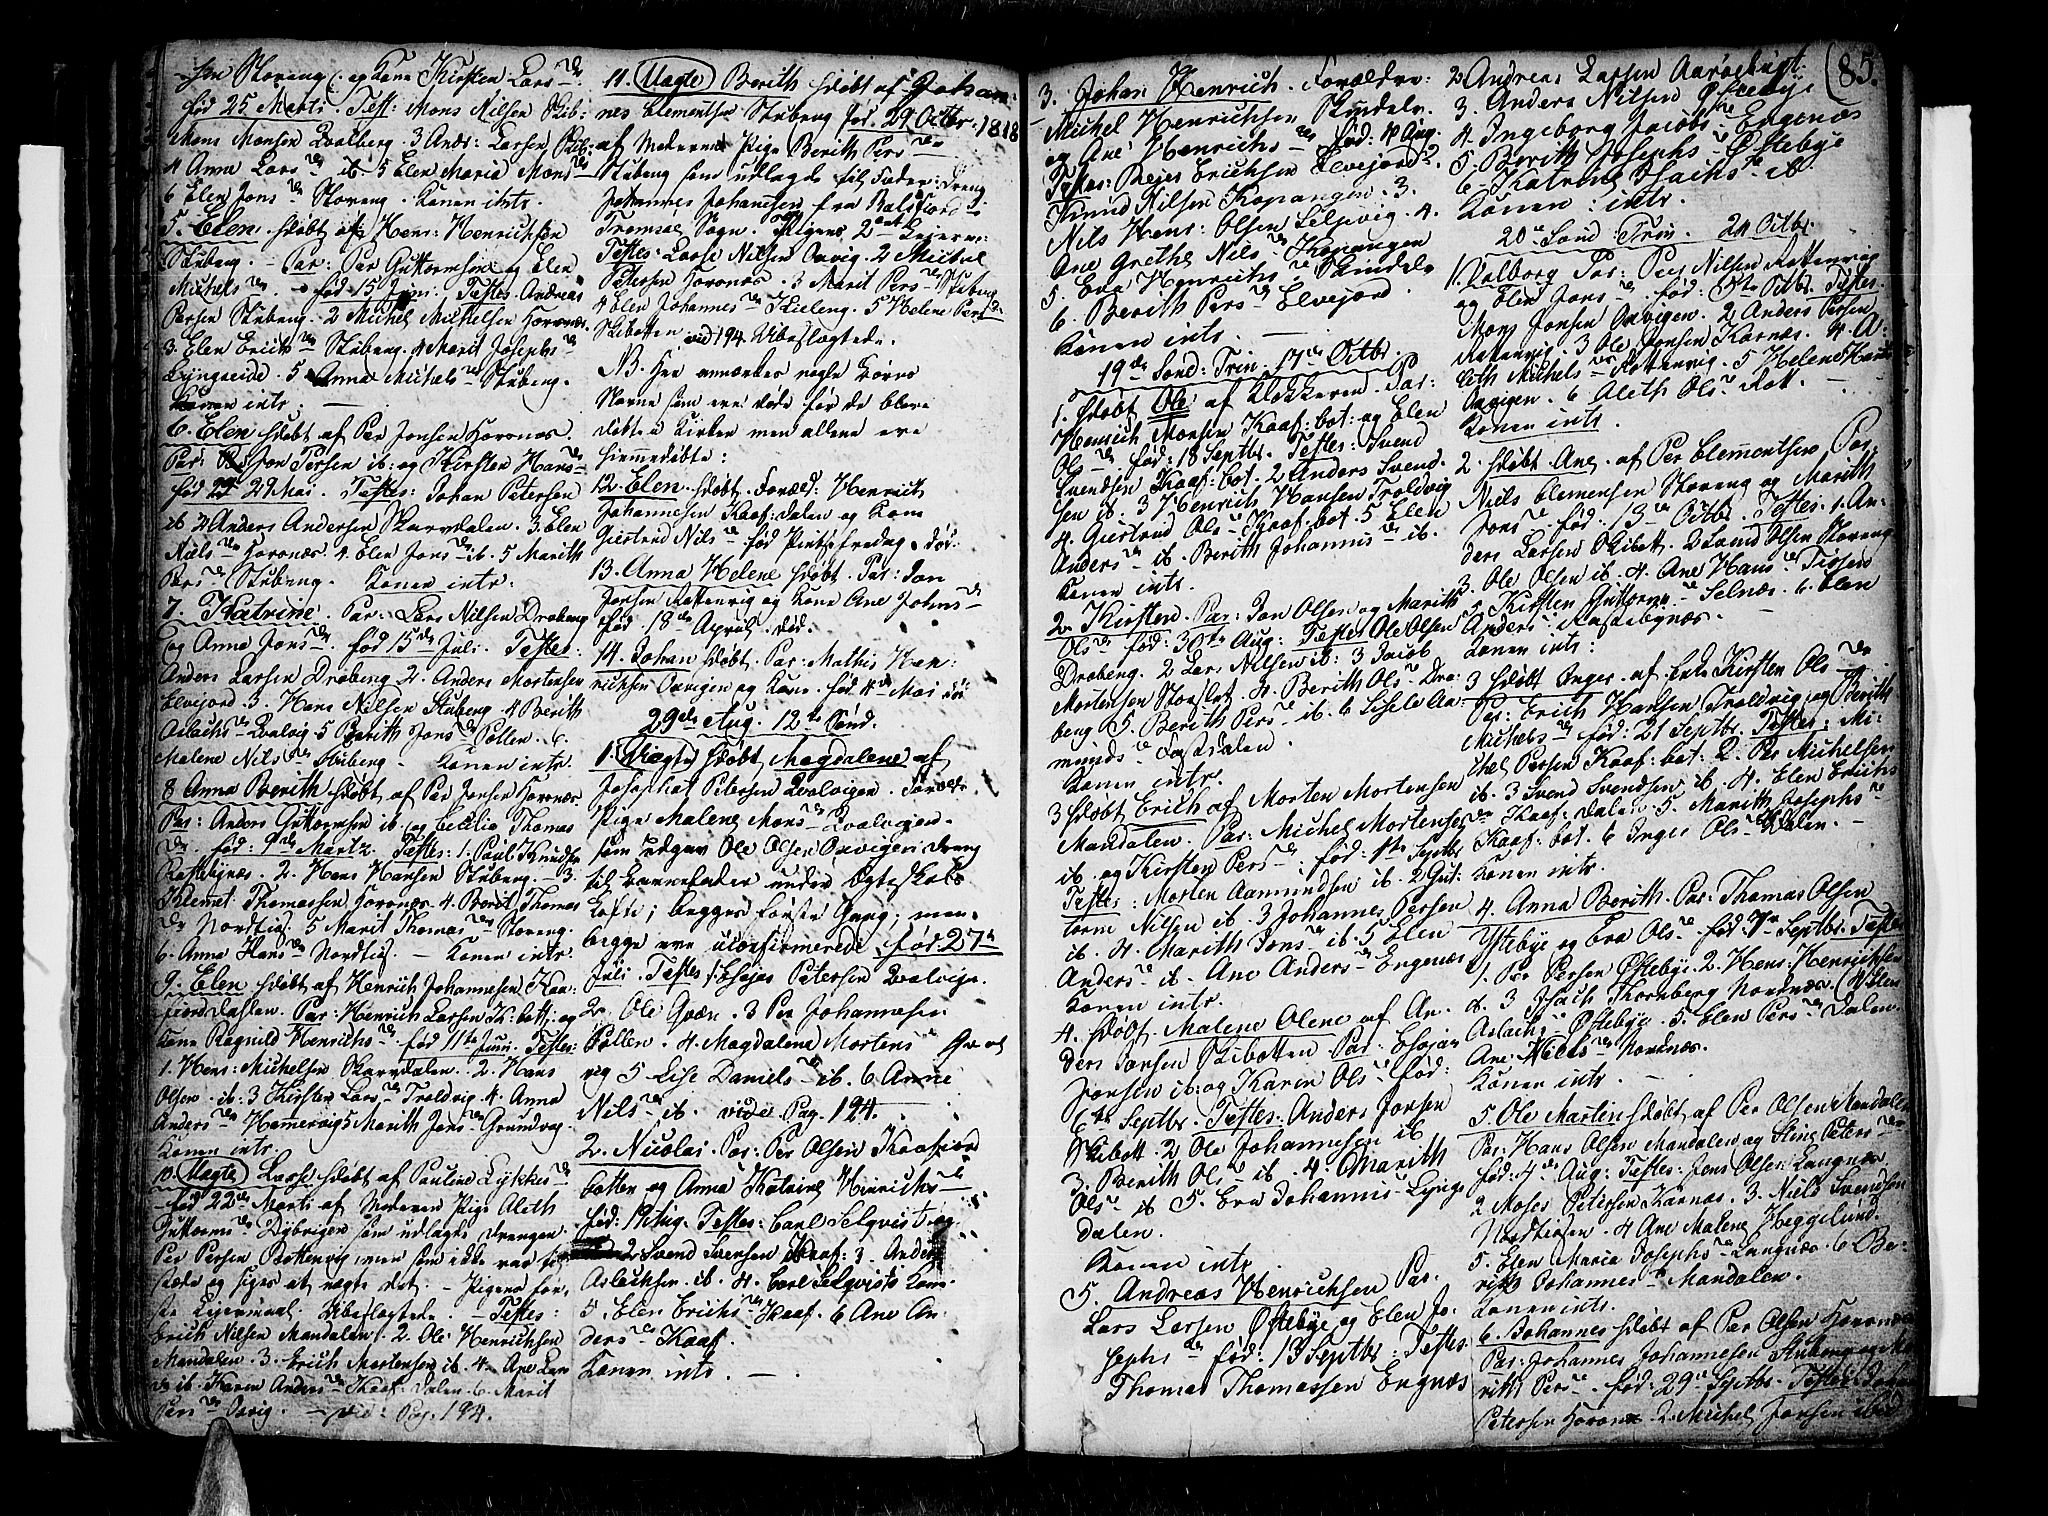 sen Storeng og Kone Kirsten Lars
født 25 Marti. Test: Mons Nilsen Skib
Mons Monsen Qvalberg. 3 Anders Larsen Skib:
4 Anna Lars ib. 5 Elen Maria Mons
6 Elen Jons Storeng. Konen intr.
5. Elen døbt af Hens: Henrichsen
Stubeng. Par: Per Guttormsen og Elen
Michels. født 15 Juni. Testes: Andreas
Persen Stubeng. 2 Michel Michelsen Horsnæs.
3. Elen Erichs Stubeng. 4 Marit Josephs
Lyngseide. 5 Anna Michels Stubeng.
Konen intr.
6. Elen døbt af Per Jonsen Horsnæs.
Par: Jon Persen ib: og Kirsten Hans
født 29 Mai. Testes: Johan Petersen
ib 2 Anders Andersen Skarvdalen. 3. Elen
Niels Horsnæs. 4. Elen Jons ib. 5 Marith
Pers Stubeng. Konen intr:
7. Katrine. Par: Lars Nilsen Drabeng
og Anna Jons. født 15 Juli. Testes:
Anders Larsen Drabeng 2. Anders Mortensen
Elvejord 3. Hans Nilsen Stubeng. 4 Berith
Aslachs Qvalvig 5 Berith Jons Pollen. 6.
Malene Nils Stubeng. Konen intr.
8 Anna Berith døbt af Per Jonsen Horsnæs.
Par: Anders Guttormsen ib. og Cecilia Thomas
født: Martz. Testes: 1. Paul Knudsen
Rastebynæs. 2. Hens Hansen Stubeng. 3.
Klemet Thomassen Horsnæs. 4. Berit Thomas
Nordtia. 5 Marit Thomas Storeng.
6. Anna Hans Nordtia. Konen intr.
9. Elen døbt af Henrich Johannesen Kaa-
fjorddalen. Par: Henrich Larsen K: bott: og
Kone Ragnild Henrichs født 11te Juni. Testes:
1. Hens: Michelsen Skarvdalen. 2. Hans
Olsen ib: 3 Kirsten Lars Troldvig 4. Anna
Anders Hamnervig 5 Marith Jons Grundvog.
Konen intr.
10. Uægte Lasse døbt af Pauline Lykkes
født 22de Marti af Moderen Pige Aleth
Guttorms Dybvigen som udlagde Drengen
Per Persen Bottenvig, men som ikke var til
stede og siges at nægte det. Pigens før-
ste Leiermaal. Ubeslægtede. Testes:
Erich Nilsen Mandalen. 2. Ole Henrichsen
Mandalen. 3. Erich Mortensen ib. 4. Ane Lars
ib. Karen Anders Kaaf: Dalen. 6. Marit
Pers Oxvig. vid: Pag. 194.
11. Uægte Berith døbt af Johan-
nes Clementsen Stubeng født 29 Octbr. 1818
af Moderen Pige Berith Pers
Stubeng som udlagde til Fader: Dreng
Johannes Johannesen fra Balsfjord
Tromsøe Sogn. Pigens 2det Leierm:
Testes: Lasse Nilsen Oxvig. 2 Michel
Petersen Horsnæs. 3 Marit Pers Stubeng
4 Elen Johannes Kieleng. 5 Helene Pers
Skibotten vid 194. Ubeslægtede.
NB. Her anmærkes nogle Børns
Navne som ere døde før de bleve
 Kirken men allene ere
hiemmedøbte:
12. Elen døbt. Foræld: Henrich
Johannesen Kaaf: dalen og Kone
Giertrud Nils. født Pintsefredag. død.
13. Anna Helene døbt. Par: Jon
Jonsen Rottenvig og Kone Ane Johns
født 18de April. død.
14. Johan døbt. Par: Mathis Hen-
richsen Oxvigen og Kone. født 4de Mai død
29de Aug. 12te Sønd.
1. Uægte døbt Magdalene af
Josaphat Petersen Qvalvigen. Foræld:
Pige Malene Mons Qvalvigen.
som udgav Ole Olsen Oxvigen Dreng
til Barnefader under Egteskabs
Løfte; begges første Gang; men
begge ere uconfirmerede født 27de
Juli. Testes: 1. Esajas Petersen Qvalvigen.
2. Ole Qvæn. 3 Per Johannesen
Pollen. 4. Magdalena Mortens Qval
vig 5 Lise Daniels ib. 6 Anne
Nils ib. vide Pag. 194.
2. Nicolai. Par: Per Olsen Kaafiord
botten og Anna Katrine Hinrichs
fød: 19 Aug. Testes: Carl Selqvist og
2 Svend Svensen Kaaf: 3. Anders
Aslachsen ib. 4. Carl Selqvists Kone
5. Elen Erichs Kaaf: 6 Ane An-
ders Kaaf.
Konen intr.
3. Johan Henrich. Forældre:
Michel Henrichsen Skindelv
og Ane Henrichs født: 4 Aug.
Testes: Bejer Erichsen Elvejord 2.
Knud Nilsen Kopangen. 3.
Nils Hens: Olsen Seljevig. 4.
Ane Grethe Nils Kopangen
5. Eva Henrichs Skindelv
6. Berith Pers Elvejord.
Konen intr.
19de Sønd: Trin. 17de Octbr.
1. døbt Ole af Klokkeren Par:
Henrich Monsen Kaaf: bot: og Elen
Ols født: 18 Septbr. Testes: Svend
Svendsen Kaaf: bot. 2 Anders Svend-
sen ib. 3 Henrich Hansen Troldvig
4. Giertrud Ols Kaaf: bot. 5 Elen
Anders ib. Berith Johannis ib.
Konen intr.
2. Kirsten. Par: Jon Olsen og Marith
Ols født: 30te Aug: Testes Ole Olsen
Drabeng. 2 Lars Nilsen ib: 3 Jacob
Mortensen Storslet. 4. Berith Ols Dra-
beng 5. Berith Pers ib. 6 Lisele Aa-
munds Dalen.
Konen intr.
3 døbt Erich af Morten Mortensen
Mandalen. Par: Michel Mortensen
ib. og Kirsten Pers. født: 1te Septbr
Testes: Morten Aamundsen ib. 2 Gut-
torm Nilsen ib. 3 Johannes Persen
ib. 4. Marith Jons ib. 5 Elen
Anders ib. Ane Anders Engenæs
Konen intr.
4. døbt. Malene Olene af An-
ders Jonsen Skibotten. Par: Esajas
Jonsen ib: og Karen Ols født:
6te Septbr. Testes: Anders Jonsen
Skibott. 2 Ole Johannesen ib
3. Berith Ols ib. 4. Marith
Ols ib 5. Eva Johannis Lyngs
dalen.
Konen intr.
5. Andreas Henrichsen Par.
Lars Larsen Østebye og Elen Jo-
sephs født: 13 Septbr: Testes
Thomas Thomassen Engnæs
2 Andreas Larsen Aarøebugt.
3. Anders Nilsen Østebye
4. Ingeborg Jacobs Engenæs
5. Berith Josephs Østebye
6. Katrine Isachs ib.
Konen: intr.
20de Sønd: Trin. 24 Octbr.
1. Valborg Par: Per Nilsen Rottenvig
og Elen Jons født: 8te Octbr. Testes
Mons Jonsen Oxvigen. 2 Anders Persen
Rottenvig. 3 Ole Jonsen Karnæs. 4. A-
leth Michels Rottenvig. 5 Helene Hans
Oxvigen. 6 Aleth Ols Rott.
Konen intr.
2. døbt Ane. af Per Clementsen Par.
Niels Clemensen Storeng og Marith
Jons født: 13de Octbr. Testes: 1. An-
ders Larsen Skibott. 2 Svend Olsen Storeng
3. Ole Olsen ib. 4. Ane Hans
5 Kirsten Guttorms Selnæs. 6. Elen
Anders Rastebynæs.
Konen intr:
3 døbt Inger. af Enke Kirsten Ols
Par: Erich Hansen Troldvig og Berith
Michels født: 21 Septbr. Testes: Mi-
chel Persen Kaaf: bot: 2. Per Michelsen
ib. 3 Svend Svendsen ib. 4. Elen Erichs
Kaaf: Dalen. 5. Marith Josephs
Kaaf: bot. 6 Inger Ols Dalen.
Konen intr.
4. Anna Berith. Par: Thomas Olsen
Ystebye og Eva Ols født: 7de Septbr. Testes
1. Per Persen Østebye. 2. Hens. Henrichsen
ib. 3 Isach Thornberg Nordnæs. 4 Elen
Aslachs Østebye. 5. Elen Pers Dalen.
Ane Niels Nordnæs.
Konen intr.
5. Ole Martin døbt af Per Olsen Mandalen
Par: Hans Olsen Mandalen og Stine Peters
født: 4de Aug: Testes: Jens Olsen Langnæs
2 Moses Petersen Karnæs. 3. Niels Svendsen
Nordtiøen. 4 Ane Malene Heggelund.
5. Elen Maria Josephs Langnæs. 6. Be-
rith Johannes Mandalen.
Konen intr.
6. Johannes døbt af Per Olsen Horsnæs
Par: Johannes Johannesen Stubeng og Ma-
rith Pers født: 29 Septbr. Testes: Johan
Petersen Horsnæs 2. Michel Jonsen ibid
(85.